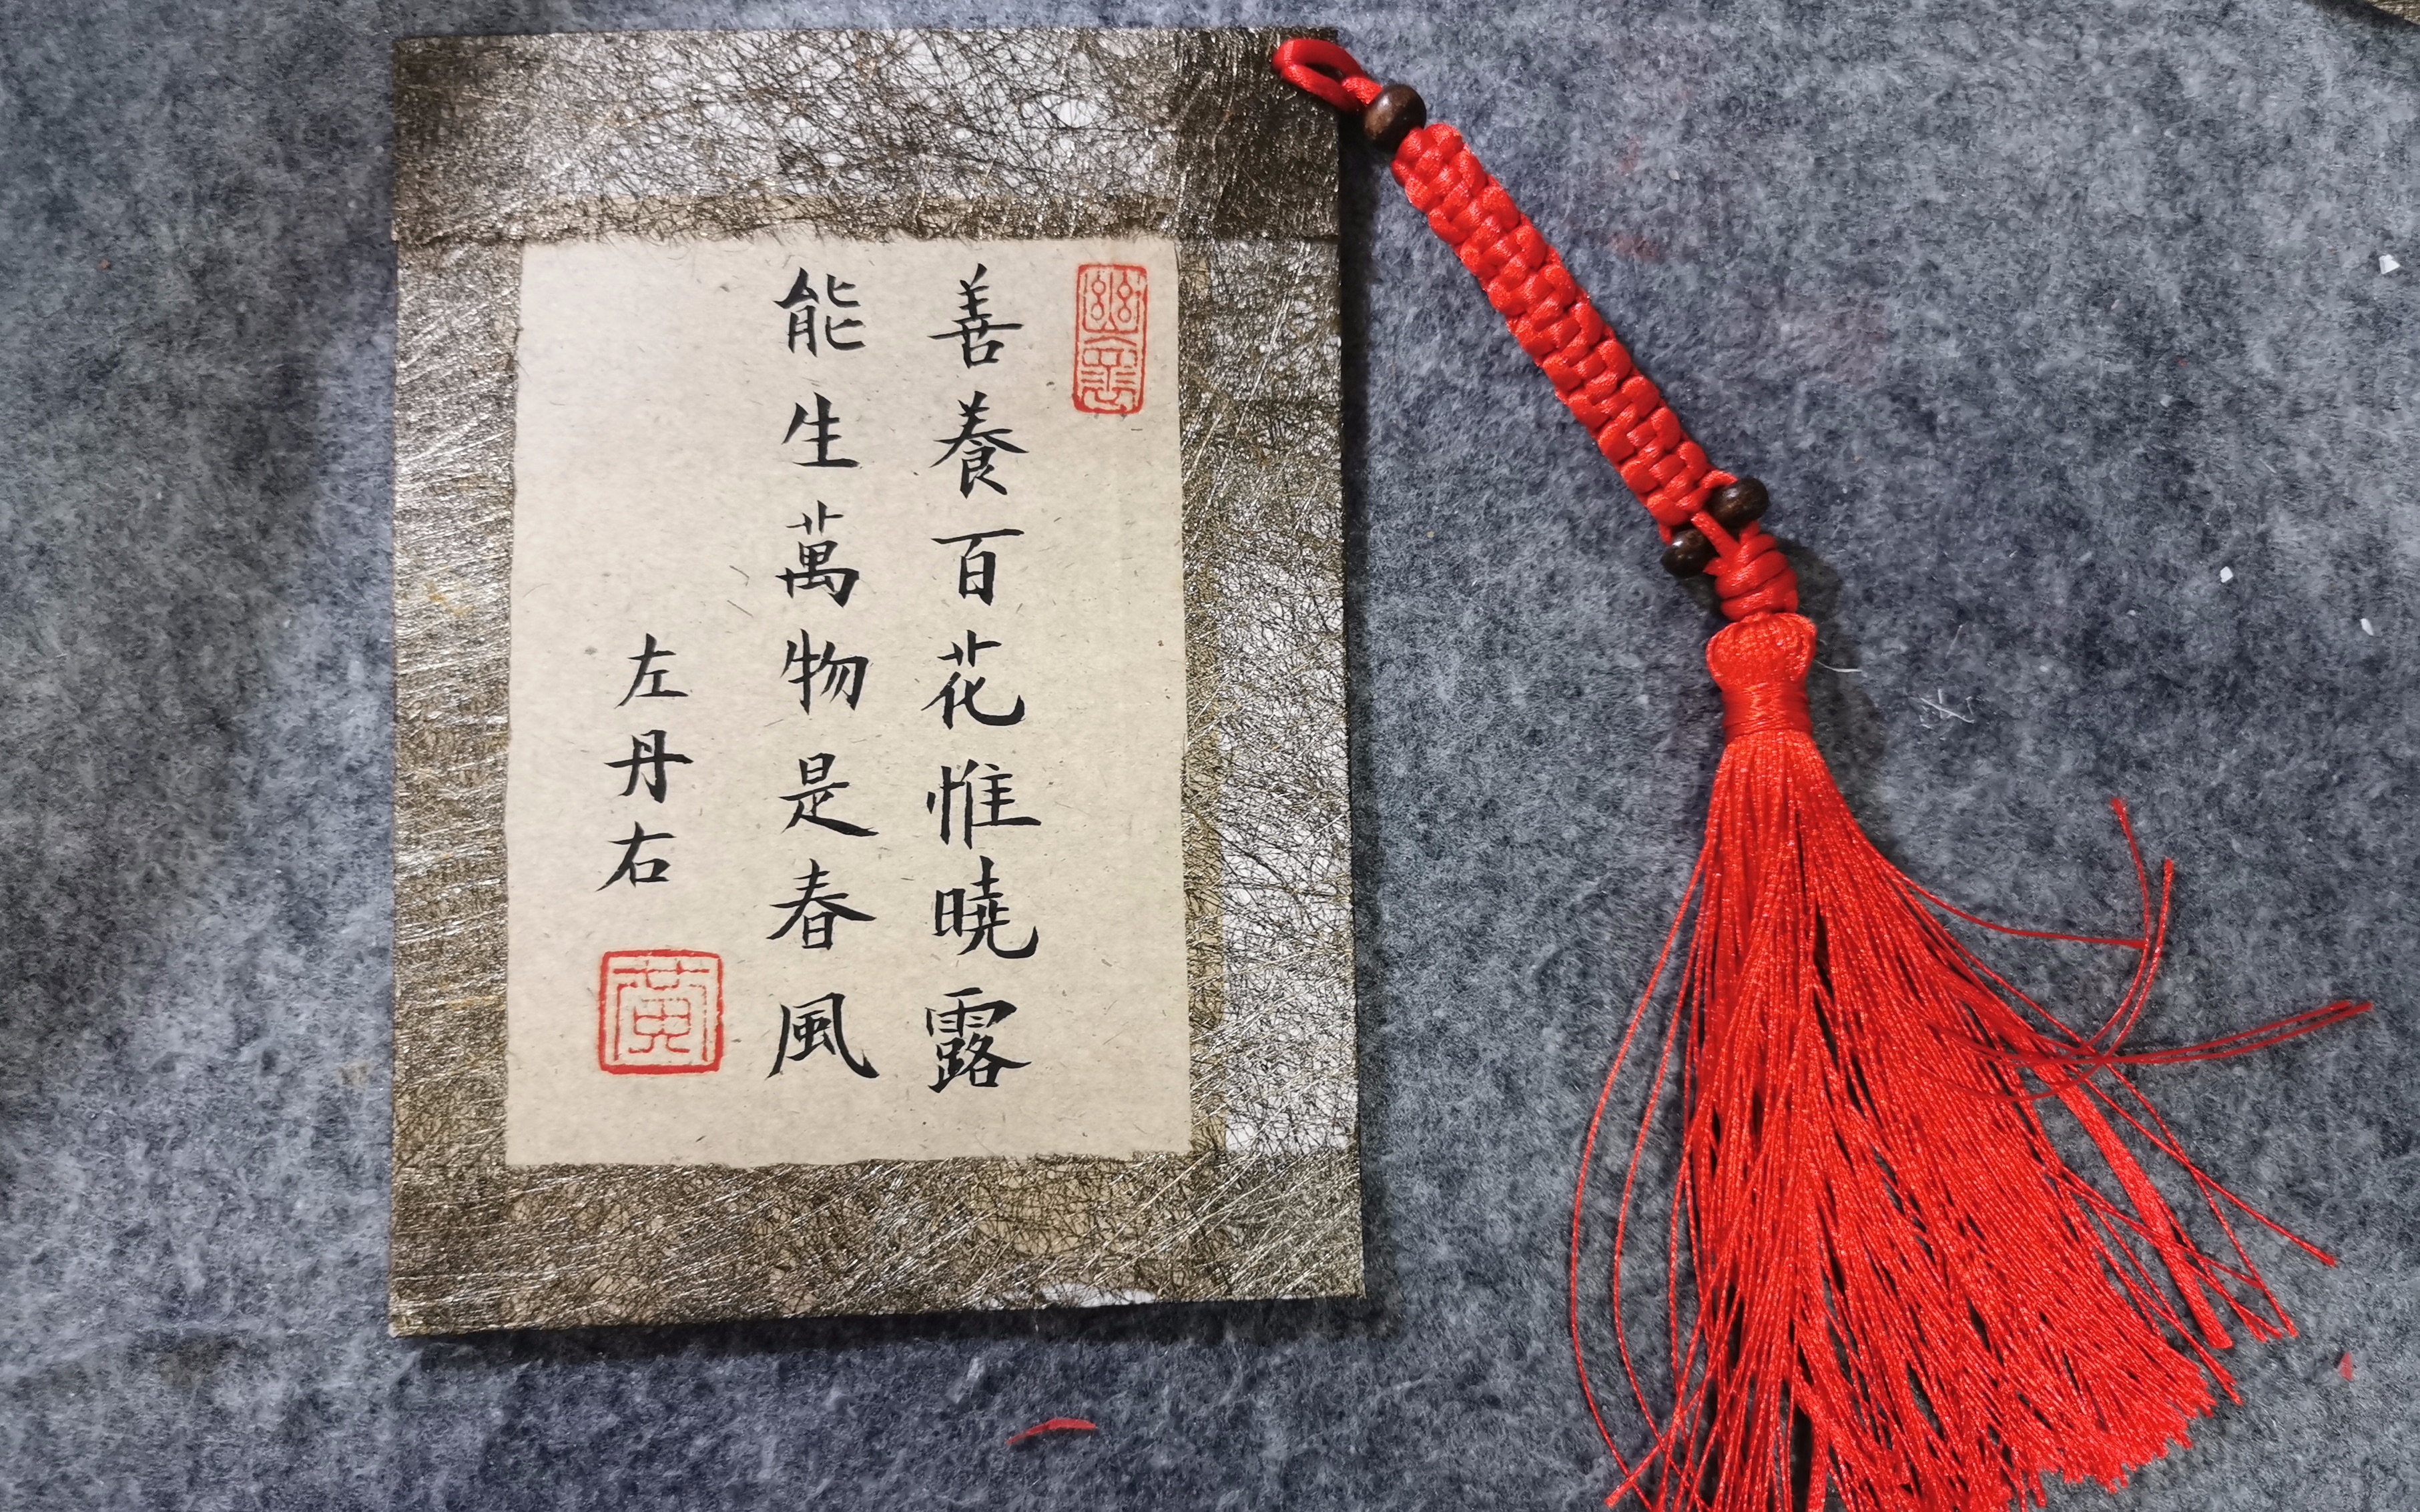 善養百花惟曉露
能生萬物是春風
左丹右
黃